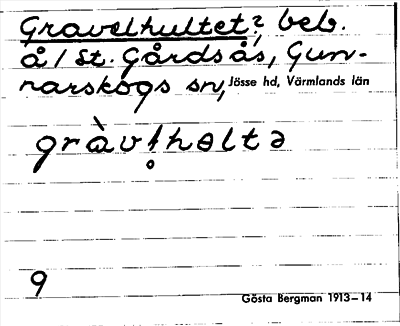 Gravelhultet?, beb.
å 1 St. Gårdsås, Gun-
narskogs sn, Jösse hd, Värmlands län
gràvl̥hɵltə
9
Gösta Bergman 1913–14